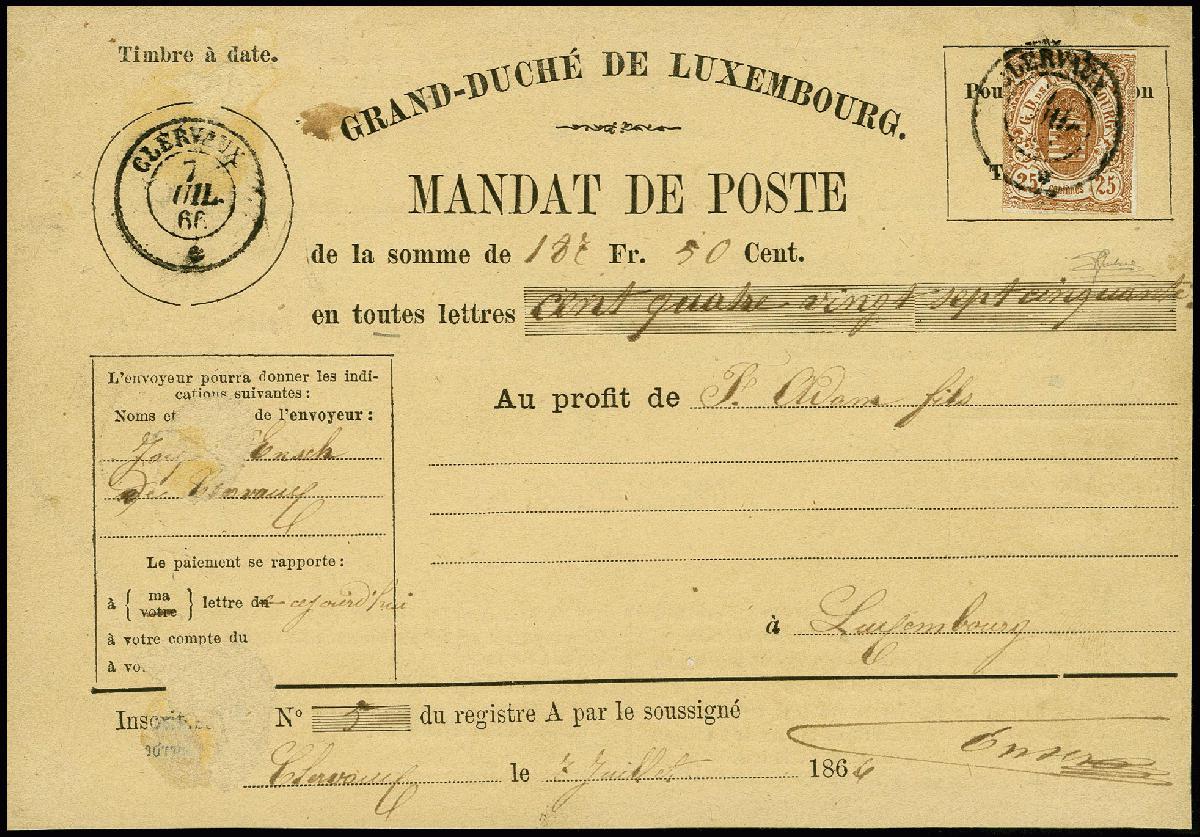 Timbre à date.
GRAND-DUCHÉ DE LUXEMBOURG.
CLERVAUX
7
JUIL.
66
CLERVAUX
25 CENTIMES 25
MANDAT DE POSTE
de la somme de 187 Fr. 50 Cent.
en toutes lettres cent quatre vingt sept cinquante
L'envoyeur pourra donner les indi-
cations suivantes:
Noms et de l'envoyeur:
Ensch
de Clervaux
Au profit de F. Adam fils
Le paiement se rapporte:
à { ma
votre } lettre de aujourd'hui
à votre compte du
à vo
à Luxembourg
Inscrit N° 5 du registre A par le soussigné
Clervaux le 7 Juillet 1866